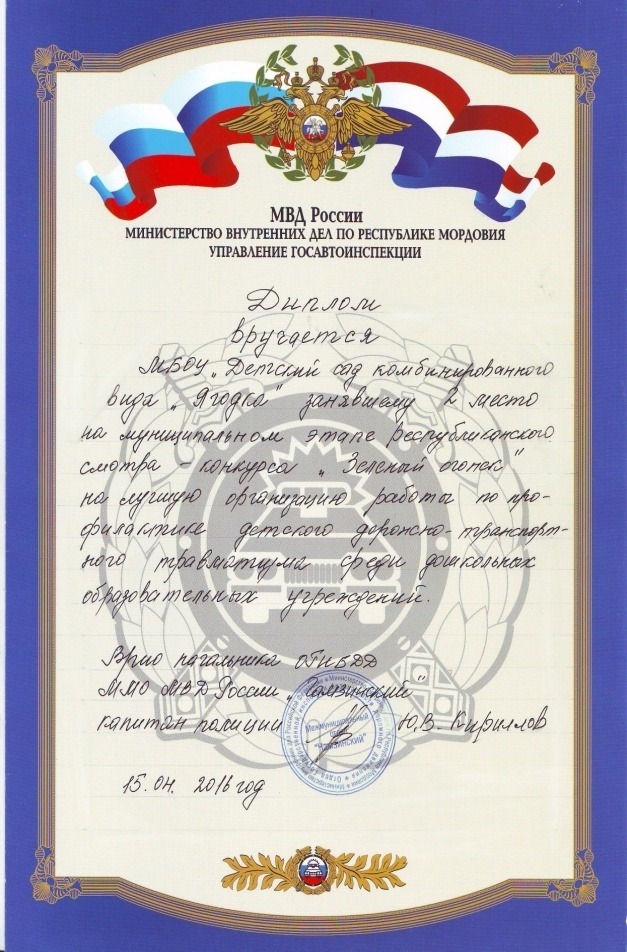 МВД России
МИНИСТЕРСТВО ВНУТРЕННИХ ДЕЛ ПО РЕСПУБЛИКЕ МОРДОВИЯ
УПРАВЛЕНИЕ ГОСАВТОИНСПЕКЦИИ
Диплом
вручается
МБОУ „Детский сад комбинированного
вида „Ягодка" занявшему 2 место
на муниципальном этапе Республиканского
смотра - конкурса „Зеленый огонек"
на лучшую организацию работы по про-
филактике детского дорожно-транспорт-
ного травматизма среди дошкольных
образовательных учреждений.
Врио начальника ОГИБДД
ММО МВД России „Ромзинский"
капитан полиции Ю.В. Кириллов
Межмуниципальный
отдел
15.04. 2016 год